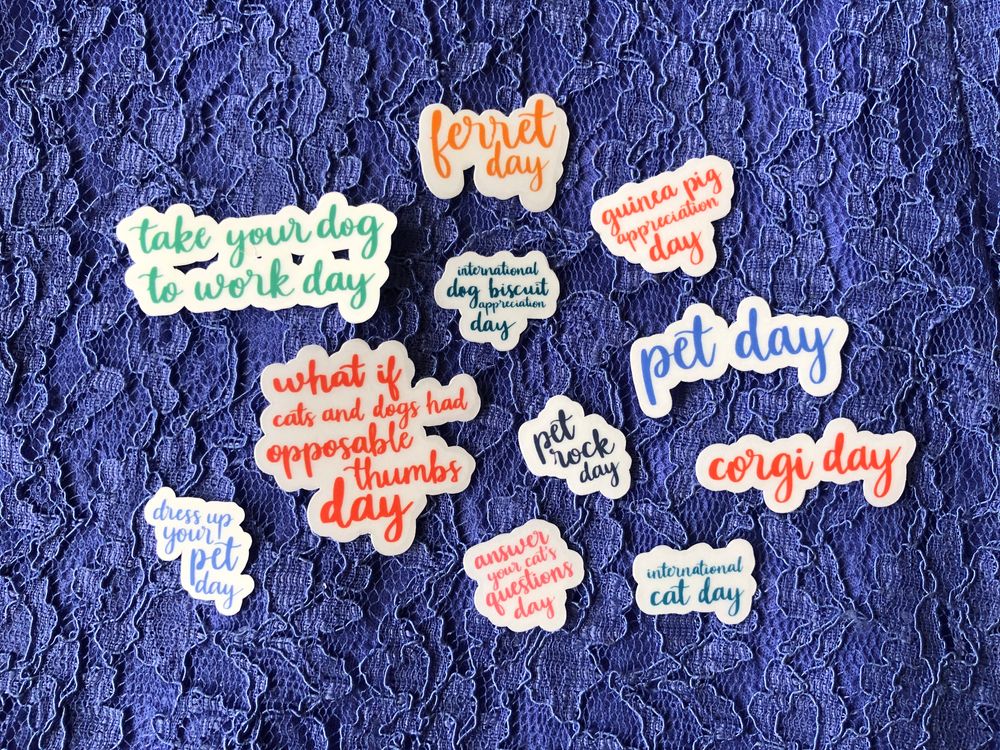 ferret
day
guinea pig
appreciation
day
take your dog
to work day
international
dog biscuit
appreciation
day
pet day
what if
cats and dogs had
opposable
thumbs
day
pet
rock
day
corgi day
dress up
your
pet
day
answer
your cat's
questions
day
international
cat day